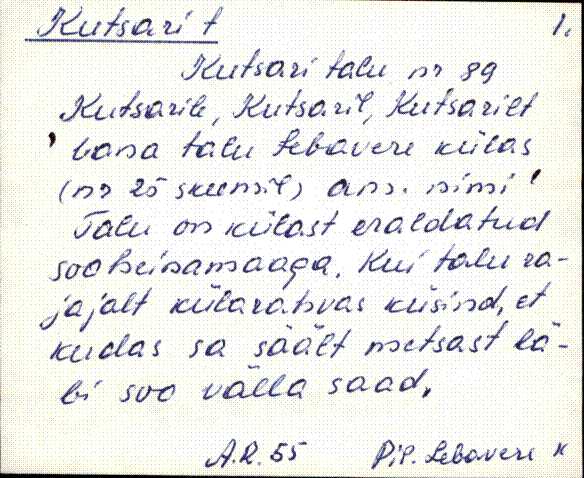 Kutsari t 1.
Kutsari talu nr 89
Kutsarile, Kutsaril, Kutsarilt
'vana talu Lebavere külas
(nr 25 skeemil) ans. nimi'
Talu on külast eraldatud
sooheinamaaga. Kui talu ra-
jajalt külarahvas küsind, et
kudas sa säält metsast lä-
bi soo välla saad,
A.R. 55 Pil. Lebavere k